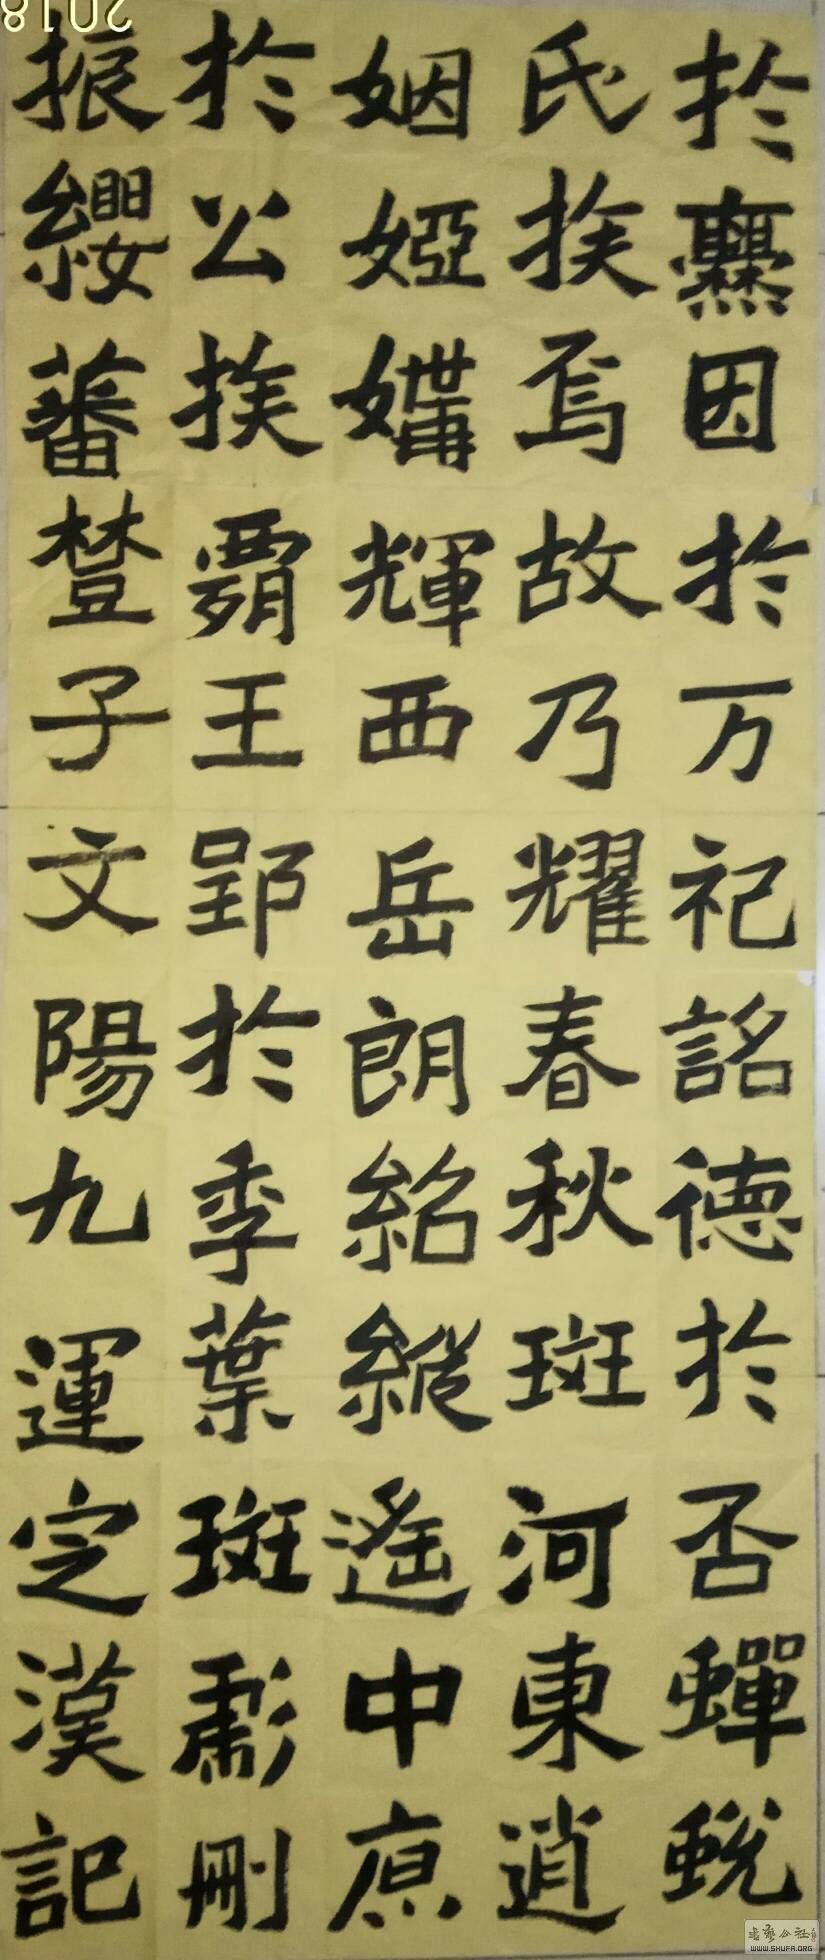 於爨因
氏族焉
姻婭媾
於公族
振纓蕃
於万祀
故乃耀
輝西岳
霸王郢
楚子文
詺德於
春秋斑
朗紹縱
於季葉
陽九運
否蟬蛻
河東逍
遙中原
斑彪刪
定漢記
2018
書藝公社
WWW.SHUFA.ORG